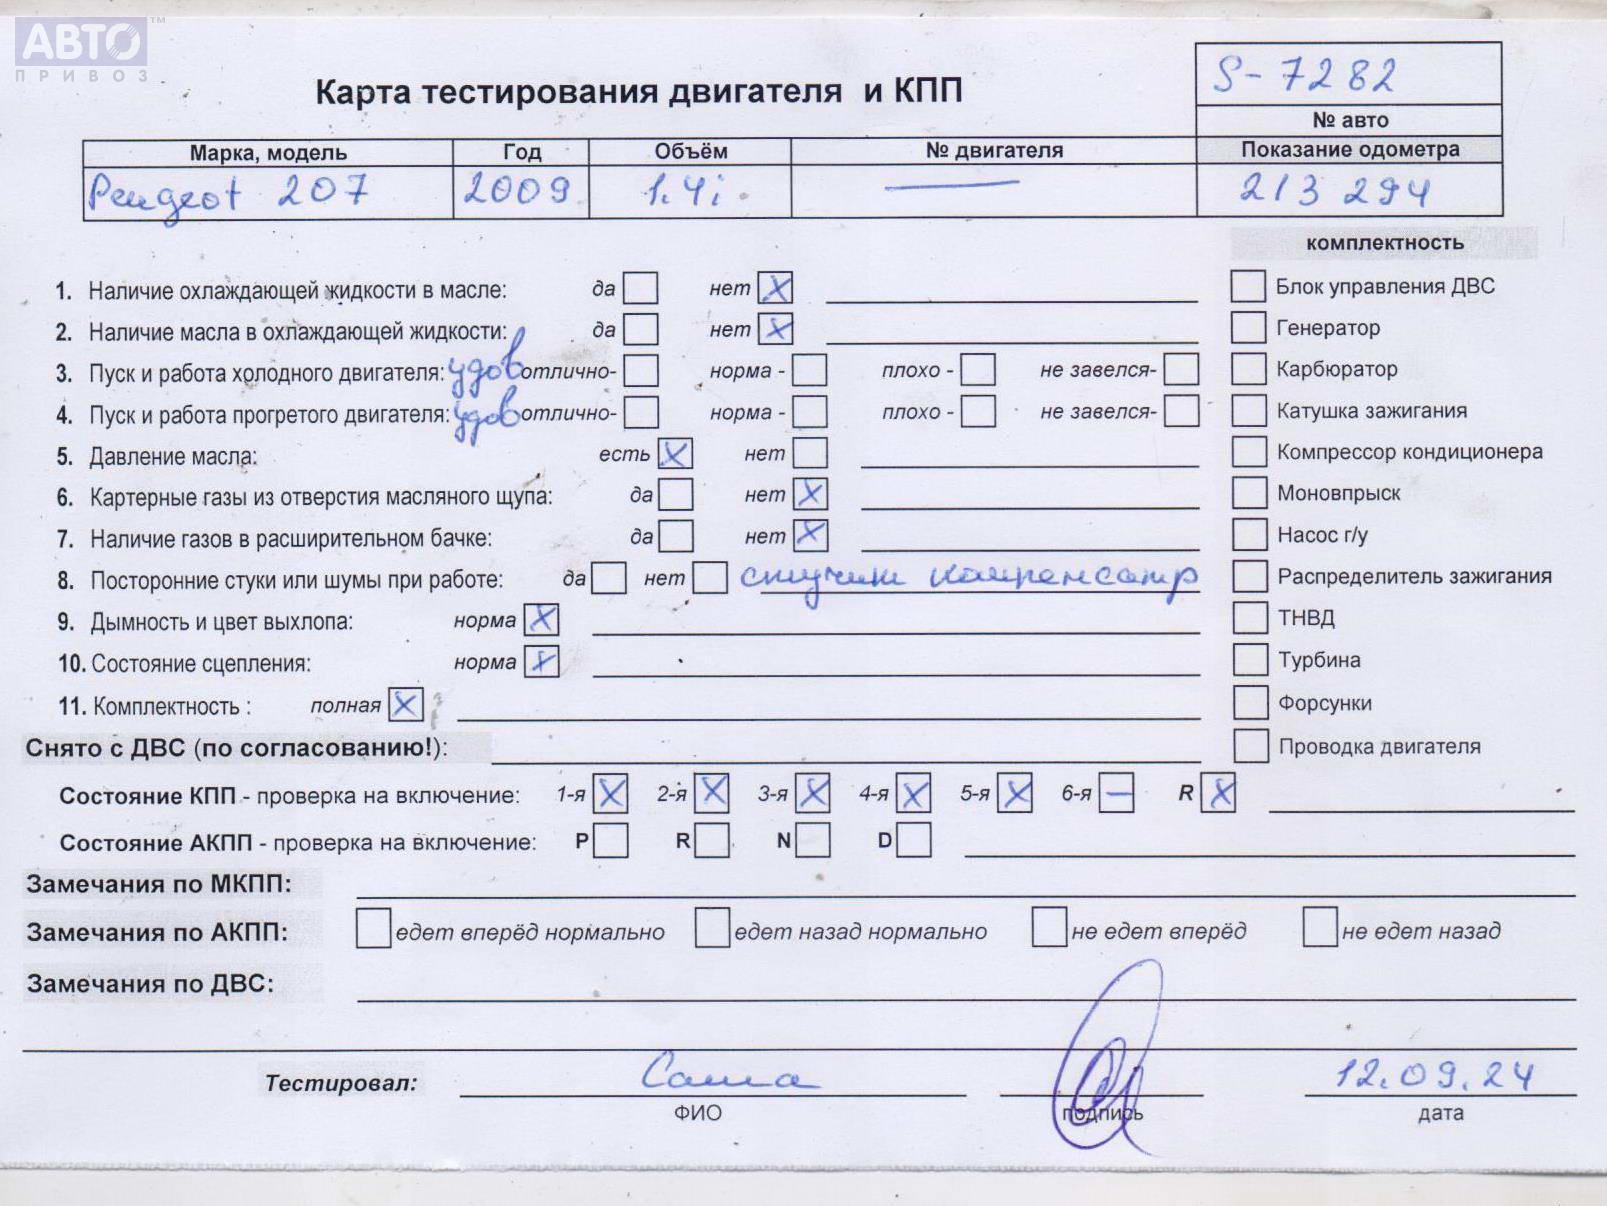 АВТО™
ПРИВОЗ
Карта тестирования двигателя и КПП
S-7282
№ авто
Марка, модель Год Объём № двигателя Показание одометра
Peugeot 207 2009 1.4i — 213 294
комплектность
1. Наличие охлаждающей жидкости в масле: да нет X
Блок управления ДВС
2. Наличие масла в охлаждающей жидкости: да нет X
Генератор
3. Пуск и работа холодного двигателя: удов отлично- норма - плохо - не завелся-
Карбюратор
4. Пуск и работа прогретого двигателя: удов отлично- норма - плохо - не завелся-
Катушка зажигания
5. Давление масла: есть X нет
Компрессор кондиционера
6. Картерные газы из отверстия масляного щупа: да нет X
Моновпрыск
7. Наличие газов в расширительном бачке: да нет X
Насос г/у
8. Посторонние стуки или шумы при работе: да нет стучит компенсатр
Распределитель зажигания
9. Дымность и цвет выхлопа: норма X
ТНВД
10. Состояние сцепления: норма X
Турбина
11. Комплектность : полная X
Форсунки
Снято с ДВС (по согласованию!):
Проводка двигателя
Состояние КПП - проверка на включение: 1-я X 2-я X 3-я X 4-я X 5-я X 6-я — R X
Состояние АКПП - проверка на включение: P R N D
Замечания по МКПП:
Замечания по АКПП: едет вперёд нормально едет назад нормально не едет вперёд не едет назад
Замечания по ДВС:
Тестировал: Саша 12.09.24
ФИО подпись дата